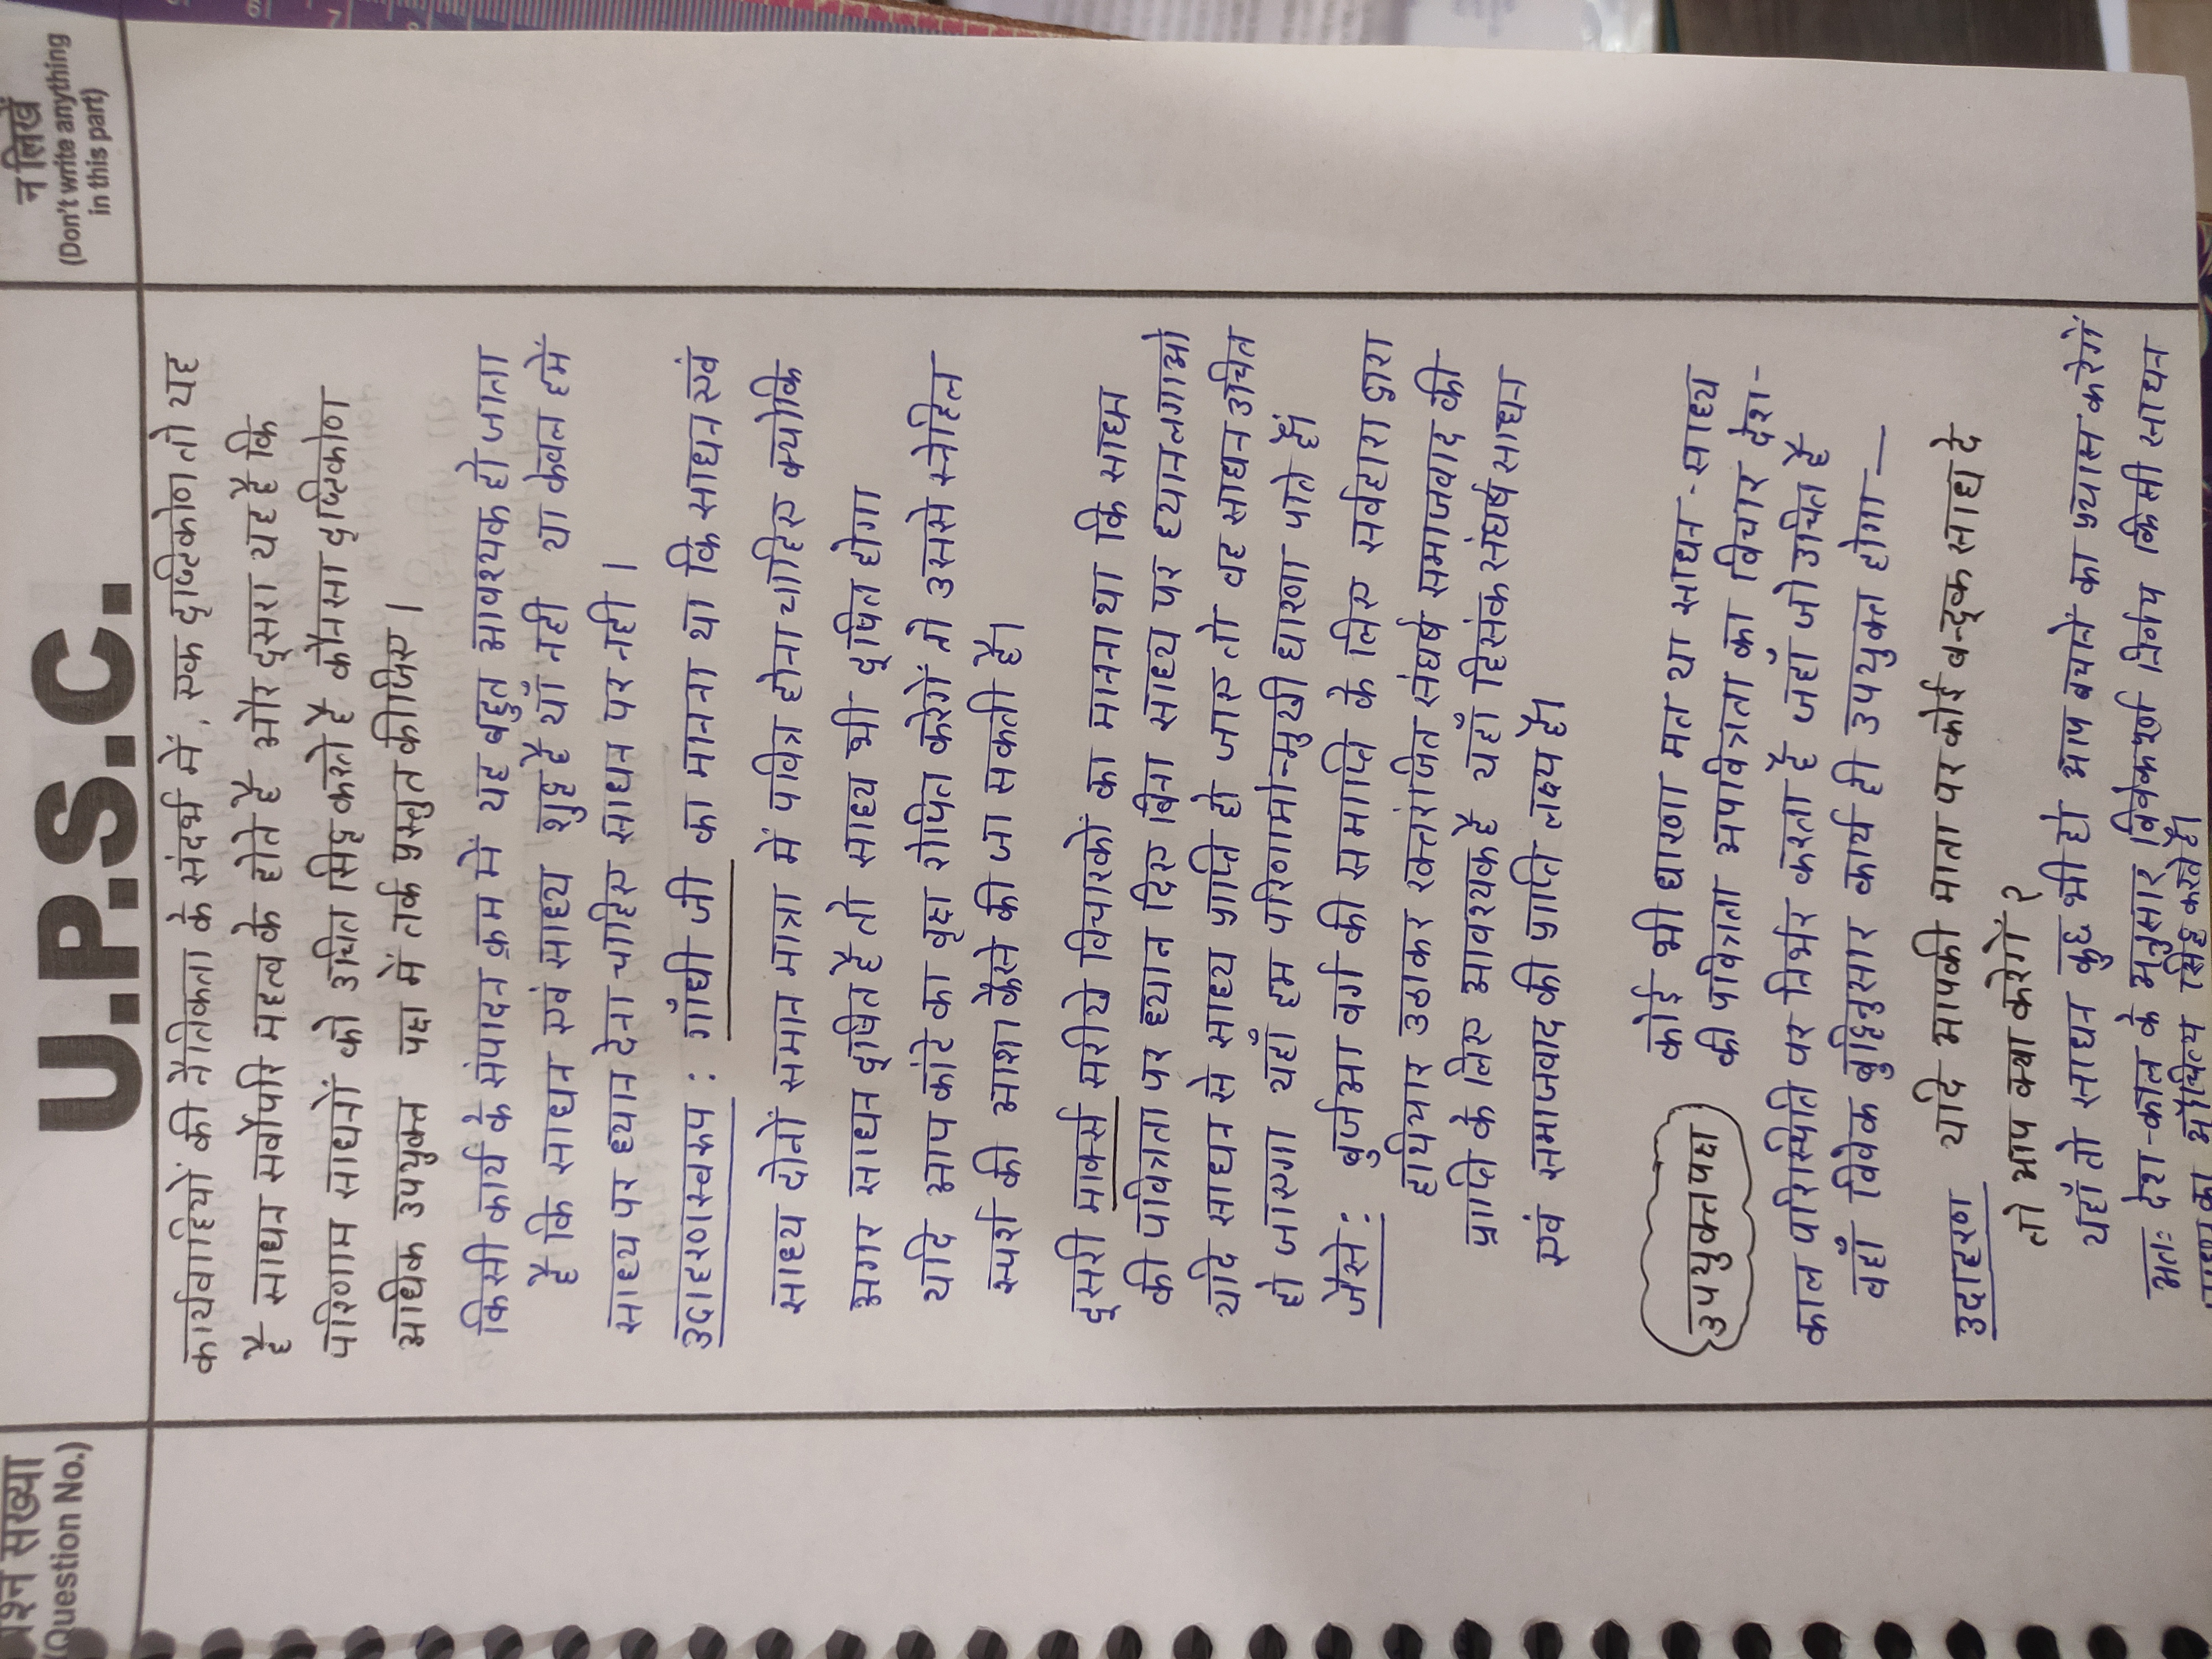 प्रश्न संख्या
(Question No.)
U.P.S.C.
न लिखें
(Don't write anything
in this part)
कार्यवाहियों की नैतिकता के संदर्भ में, एक दृष्टिकोण तो यह
है साधन सर्वोपरि महत्व के होते है और दूसरा यह है कि
परिणाम साधनों को उचित सिद्ध करते है कौनसा दृष्टिकोण
अधिक उपयुक्त पक्ष में तर्क प्रस्तुत कीजिए।
किसी कार्य के संपादन क्रम में यह बहुत आवश्यक हो जाता
है कि साधन एवं साध्य शुद्ध है याँ नही या केवल हमें
साध्य पर ध्यान देना चाहिए साधन पर नही।
उदाहरणस्वरूप : गाँधी जी का मानना था कि साधन एवं
साध्य दोनों समान मात्रा में पवित्र होना चाहिए क्योकि
अगर साधन दूषित है तो साध्य भी दूषित होगा
यदि आप कांटे का वृक्ष रोपित करेगें तो उससे स्नेहिल
स्पर्श की आशा कैसे की जा सकती है।
दूसरी मार्क्स सरीखे विचारकों का मानना था कि साधन
की पवित्रता पर ध्यान दिए बिना साध्य पर ध्यान लगाओ
यदि साधन से साध्य प्राप्ति हो जाए तो वह साधन उचित
हो जाएगा यहाँ हम परिणामोन्मुखी धारणा पाते हैं।
जैसे : बुर्जुआ वर्ग की समाप्ति के लिए सर्वहारा द्वारा
हथियार उठाकर रक्तरंजित संघर्ष समाजवाद की
प्राप्ति के लिए आवश्यक है यहाँ हिंसक संघर्ष साधन
एवं समाजवाद की प्राप्ति लक्ष्य है।
उपयुक्त पक्ष
कोई भी धारणा मत था साधन - साध्य
की पवित्रता अपवित्रता का विचार देश-
काल परिस्थिति पर निर्भर करता है जहाँ जो उचित है
वहाँ विवेक बुद्धिनुसार कार्य ही उपयुक्त होगा —
उदाहरण यदि आपकी माता पर कोई बन्दूक साध दे
तो आप क्या करेगें ?
यहाँ तो साधन कुछ भी हो आप बचाने का प्रयास करेगें
अतः देश-काल के अनुसार विवेकपूर्ण निर्णय किसी साधन
का औचित्य सिद्ध करते है।